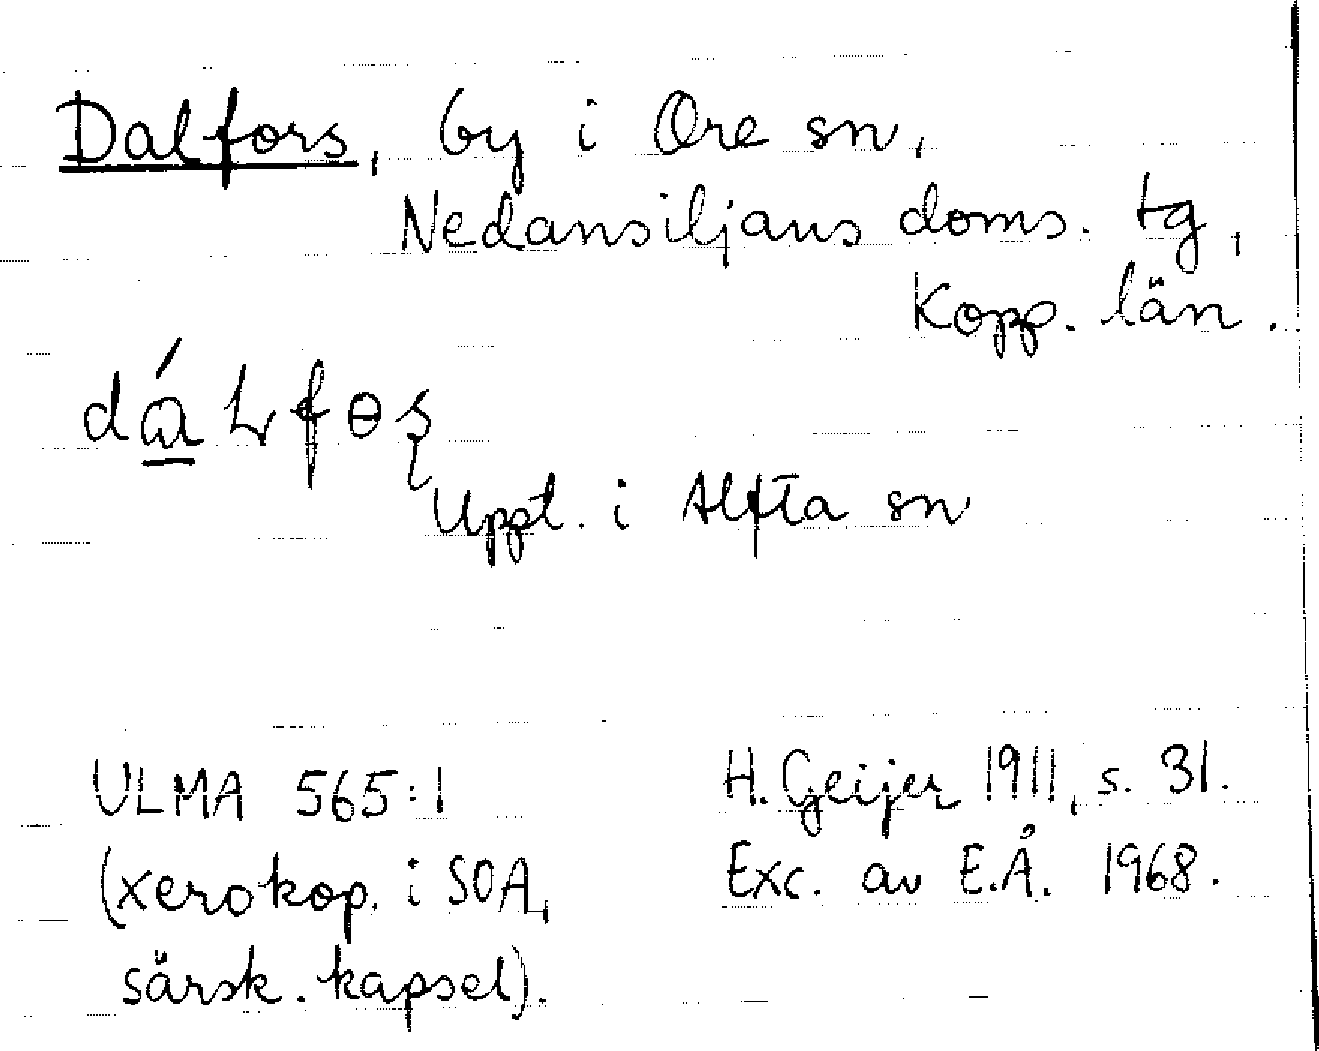 Dalfors, by i Ore sn,
Nedansiljans doms. tg,
Kopp. län.
Uppt. i Alfta sn
ULMA 565:1
(xerokop. i SOA,
särsk. kapsel).
H. Geijer 1911, s. 31.
Exc. av E.Å. 1968.